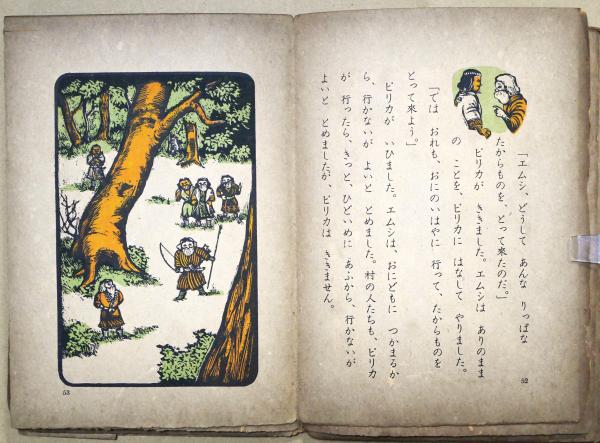 「エムシ、どうして あんな りっぱな
たからものを、とって來たのだ。」
ピリカが ききました。エムシは ありのまま
の ことを、ピリカに はなして やりました。
「では おれも、おにのいはやに 行って、たからものを
とって來よう。」
ピリカが いひました。エムシは、おにどもに つかまるか
ら、行かないが よいと とめました。村の人たちも、ピリカ
が 行ったら、きっと、ひどいめに あふから、行かないが
よいと とめましたが、ピリカは ききません。
52
53